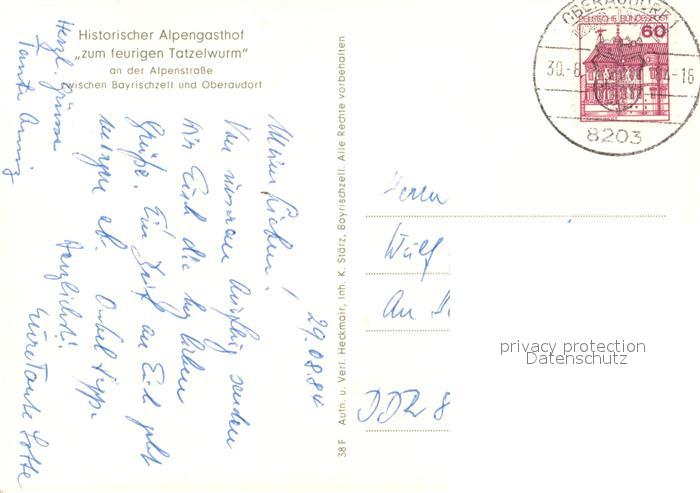 Historischer Alpengasthof
„zum feurigen Tatzelwurm"
an der Alpenstraße
zwischen Bayrischzell und Oberaudorf
29.08.84
Meine Lieben!
Von unserem Ausflug senden
wir Euch die herzlichen
Grüße. Ein Brief an Euch geht
morgen ab. Onkel
Herzlichst!
Eure Tante Lotte
Herzl. Grüsse
Tante
38 F Aufn. u. Verl. Heckmair, Inh. K. Störz, Bayrischzell. Alle Rechte vorbehalten
OBERAUDORF
DEUTSCHE BUNDESPOST
60
30.-8.
-16
8203
Herrn
Wulf
An
DDR 8
privacy protection
Datenschutz